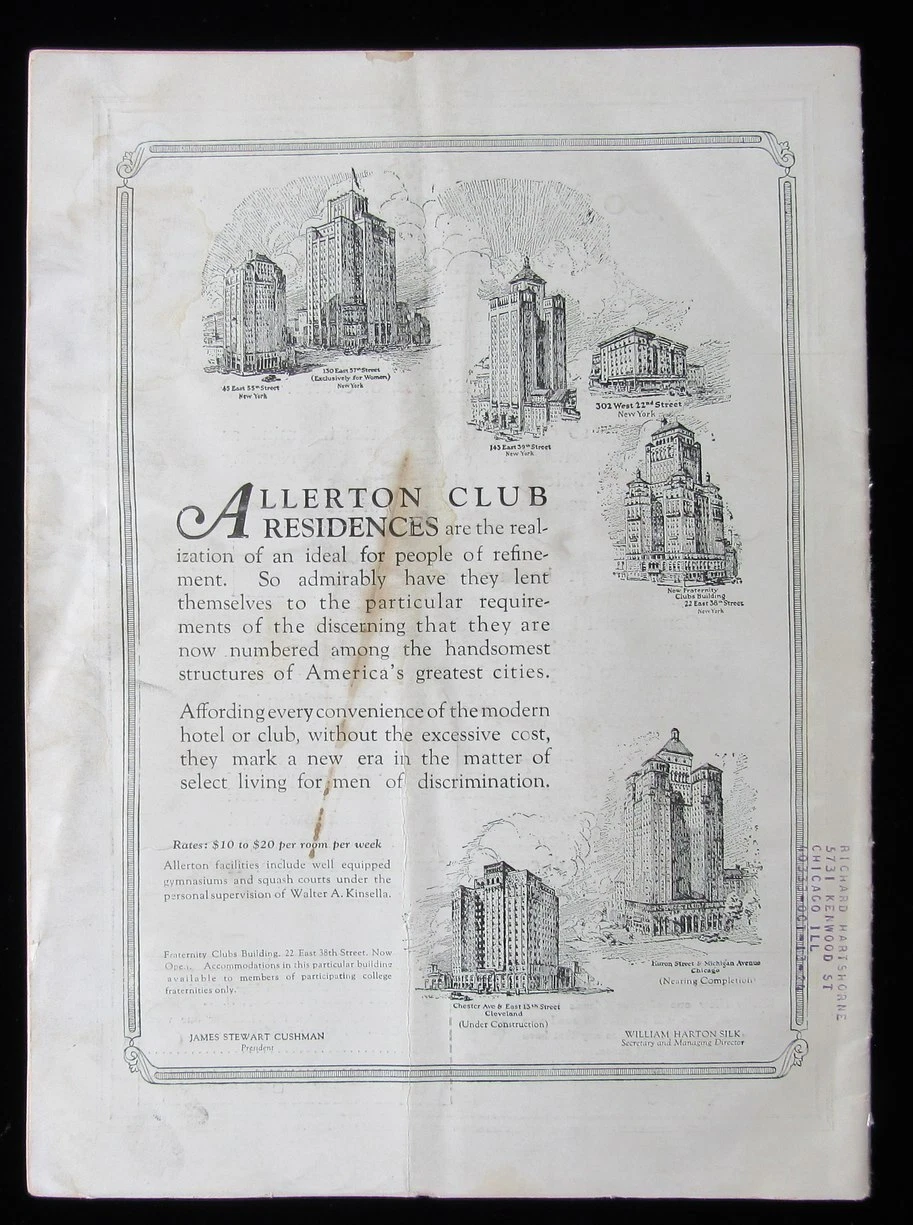 45 East 55th Street
New York
130 East 57th Street
(Exclusively for Women)
New York
143 East 39th Street
New York
302 West 22nd Street
New York
New Fraternity
Clubs Building
22 East 38th Street
New York
ALLERTON CLUB
RESIDENCES are the real-
ization of an ideal for people of refine-
ment. So admirably have they lent
themselves to the particular require-
ments of the discerning that they are
now numbered among the handsomest
structures of America's greatest cities.
Affording every convenience of the modern
hotel or club, without the excessive cost,
they mark a new era in the matter of
select living for men of discrimination.
Rates: $10 to $20 per room per week
Allerton facilities include well equipped
gymnasiums and squash courts under the
personal supervision of Walter A. Kinsella.
Fraternity Clubs Building, 22 East 38th Street. Now
Open. Accommodations in this particular building
available to members of participating college
fraternities only.
JAMES STEWART CUSHMAN
President
Chester Ave & East 13th Street
Cleveland
(Under Construction)
Huron Street & Michigan Avenue
Chicago
(Nearing Completion)
WILLIAM HARTON SILK
Secretary and Managing Director
RICHARD HARTSHORNE
5731 KENWOOD ST
CHICAGO ILL